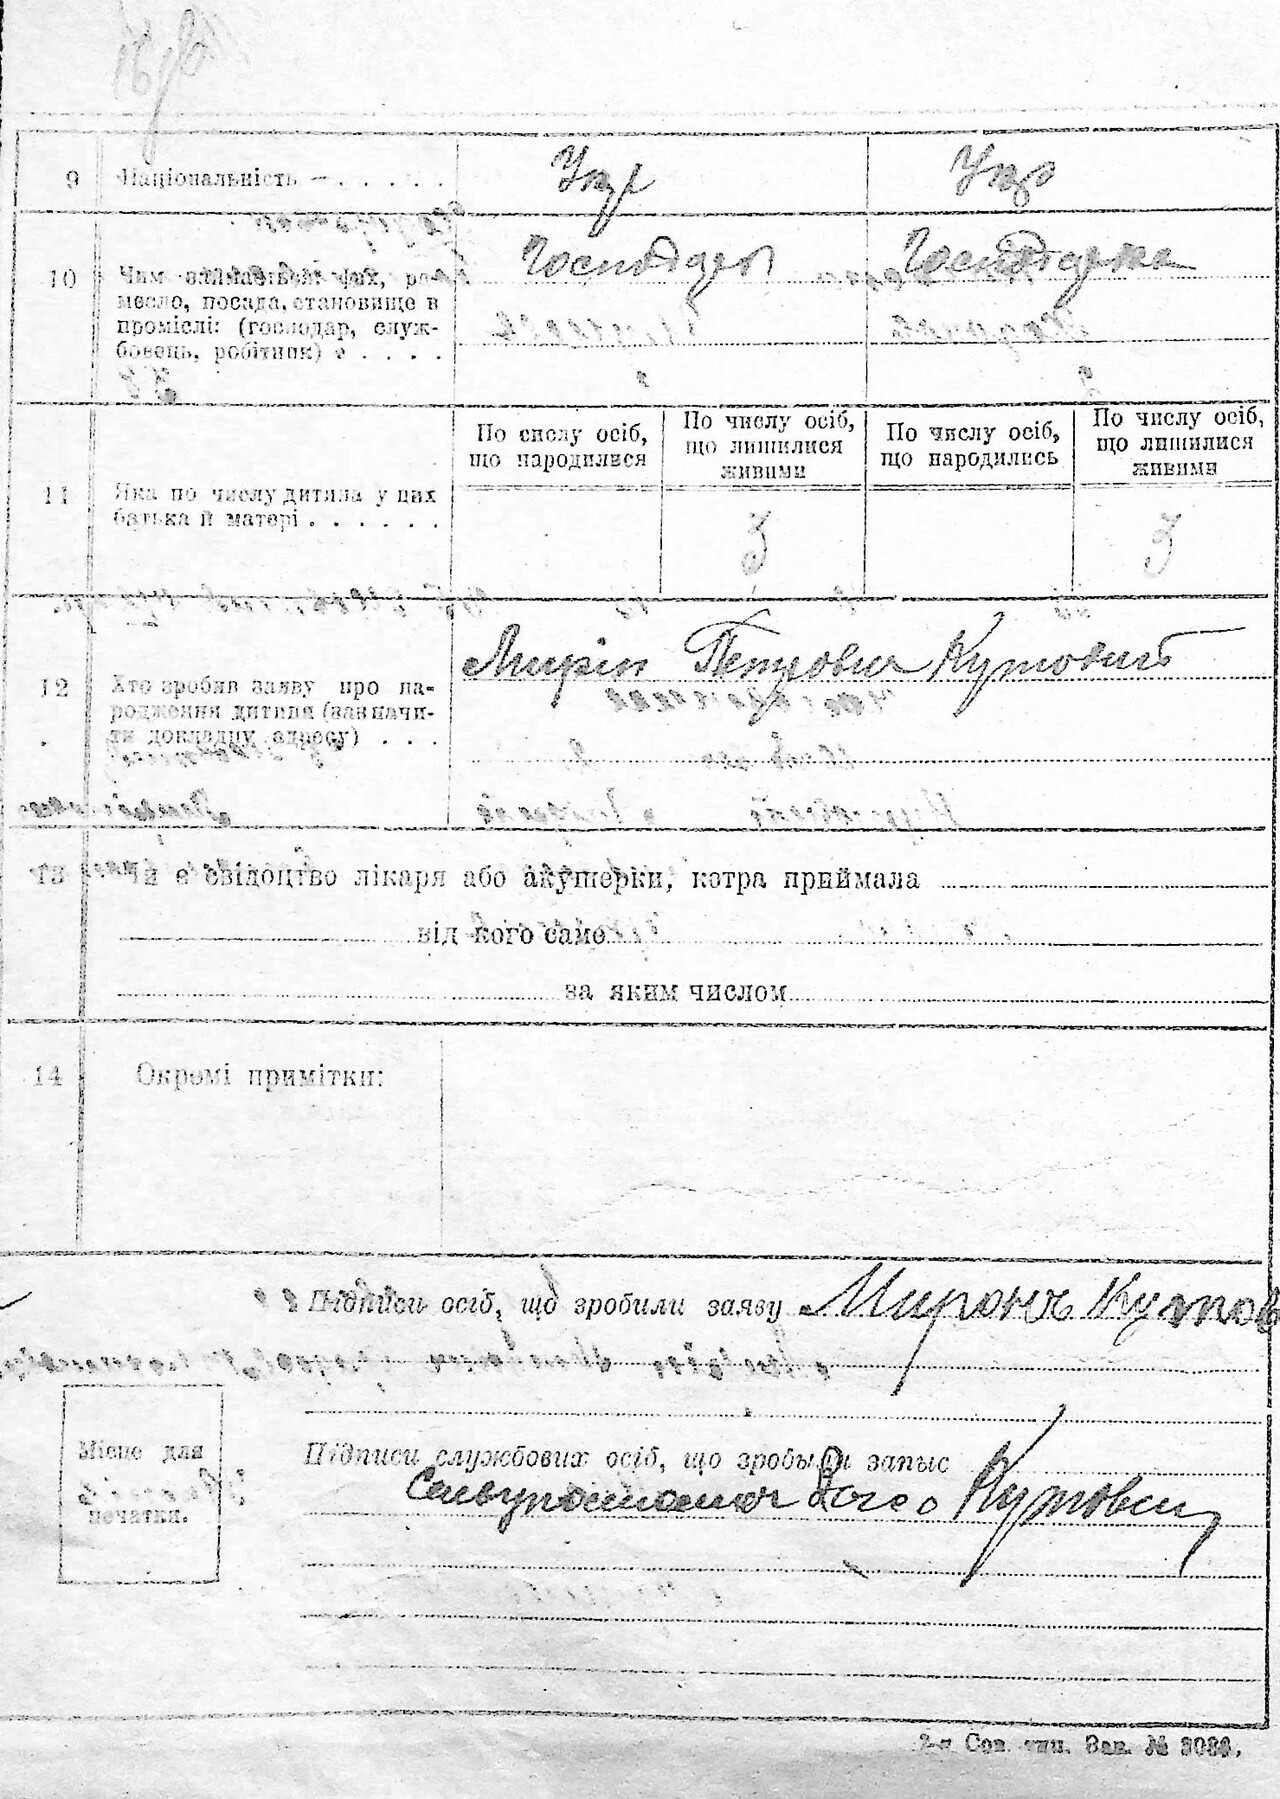 9 Національність — . . . . . Укр Укр
10 Чим займається: фах, ре-
месло, посада, становище в
промислі: (господар, служ-
бовець, робітник) . . . . .
Господарь Господарка
По числу осіб, що народилися
По числу осіб, що лишилися живими
По числу осіб, що народились
По числу осіб, що лишилися живими
11 Яка по числу дитина у цих
батька й матері . . . . . .
3 3
12 Хто зробив заяву про на-
родження дитини (зазначи-
ти докладну адресу) . . .
Мирін Петрович Кутовий
13 Чи є свідоцтво лікаря або акушерки, котра приймала
від кого саме
за яким числом
14 Окремі примітки:
Підписи осіб, що зробили заяву Миронъ Кутов
Місце для
печатки.
Підписи службових осіб, що зробыли запыс
Кутовий
2-я Сов. тип. Зак. №